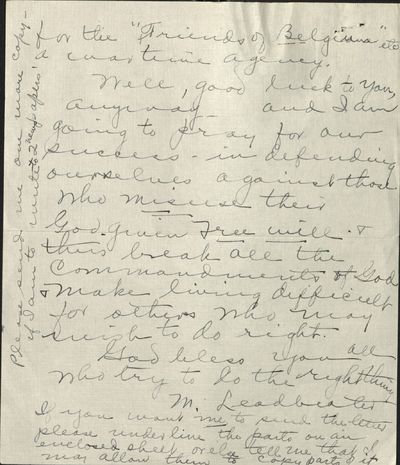 for the "Friends of Belgium" etc
a war time agency.
Well, good luck to you,
anyway and I am
going to pray for our
success - in defending
ourselves against those
who misuse their
God-given Free will - &
thus break all the
Commandments of God
& make living difficult
for others who may
wish to do right.
God bless you all
who try to do the right thing
M. Leadbeater
If you want me to send the letter
please underline the parts on an
enclosed sheet or else tell me that I
may allow them to copy parts of it
Please send me one more copy -
if I am to write to 2 newspapers